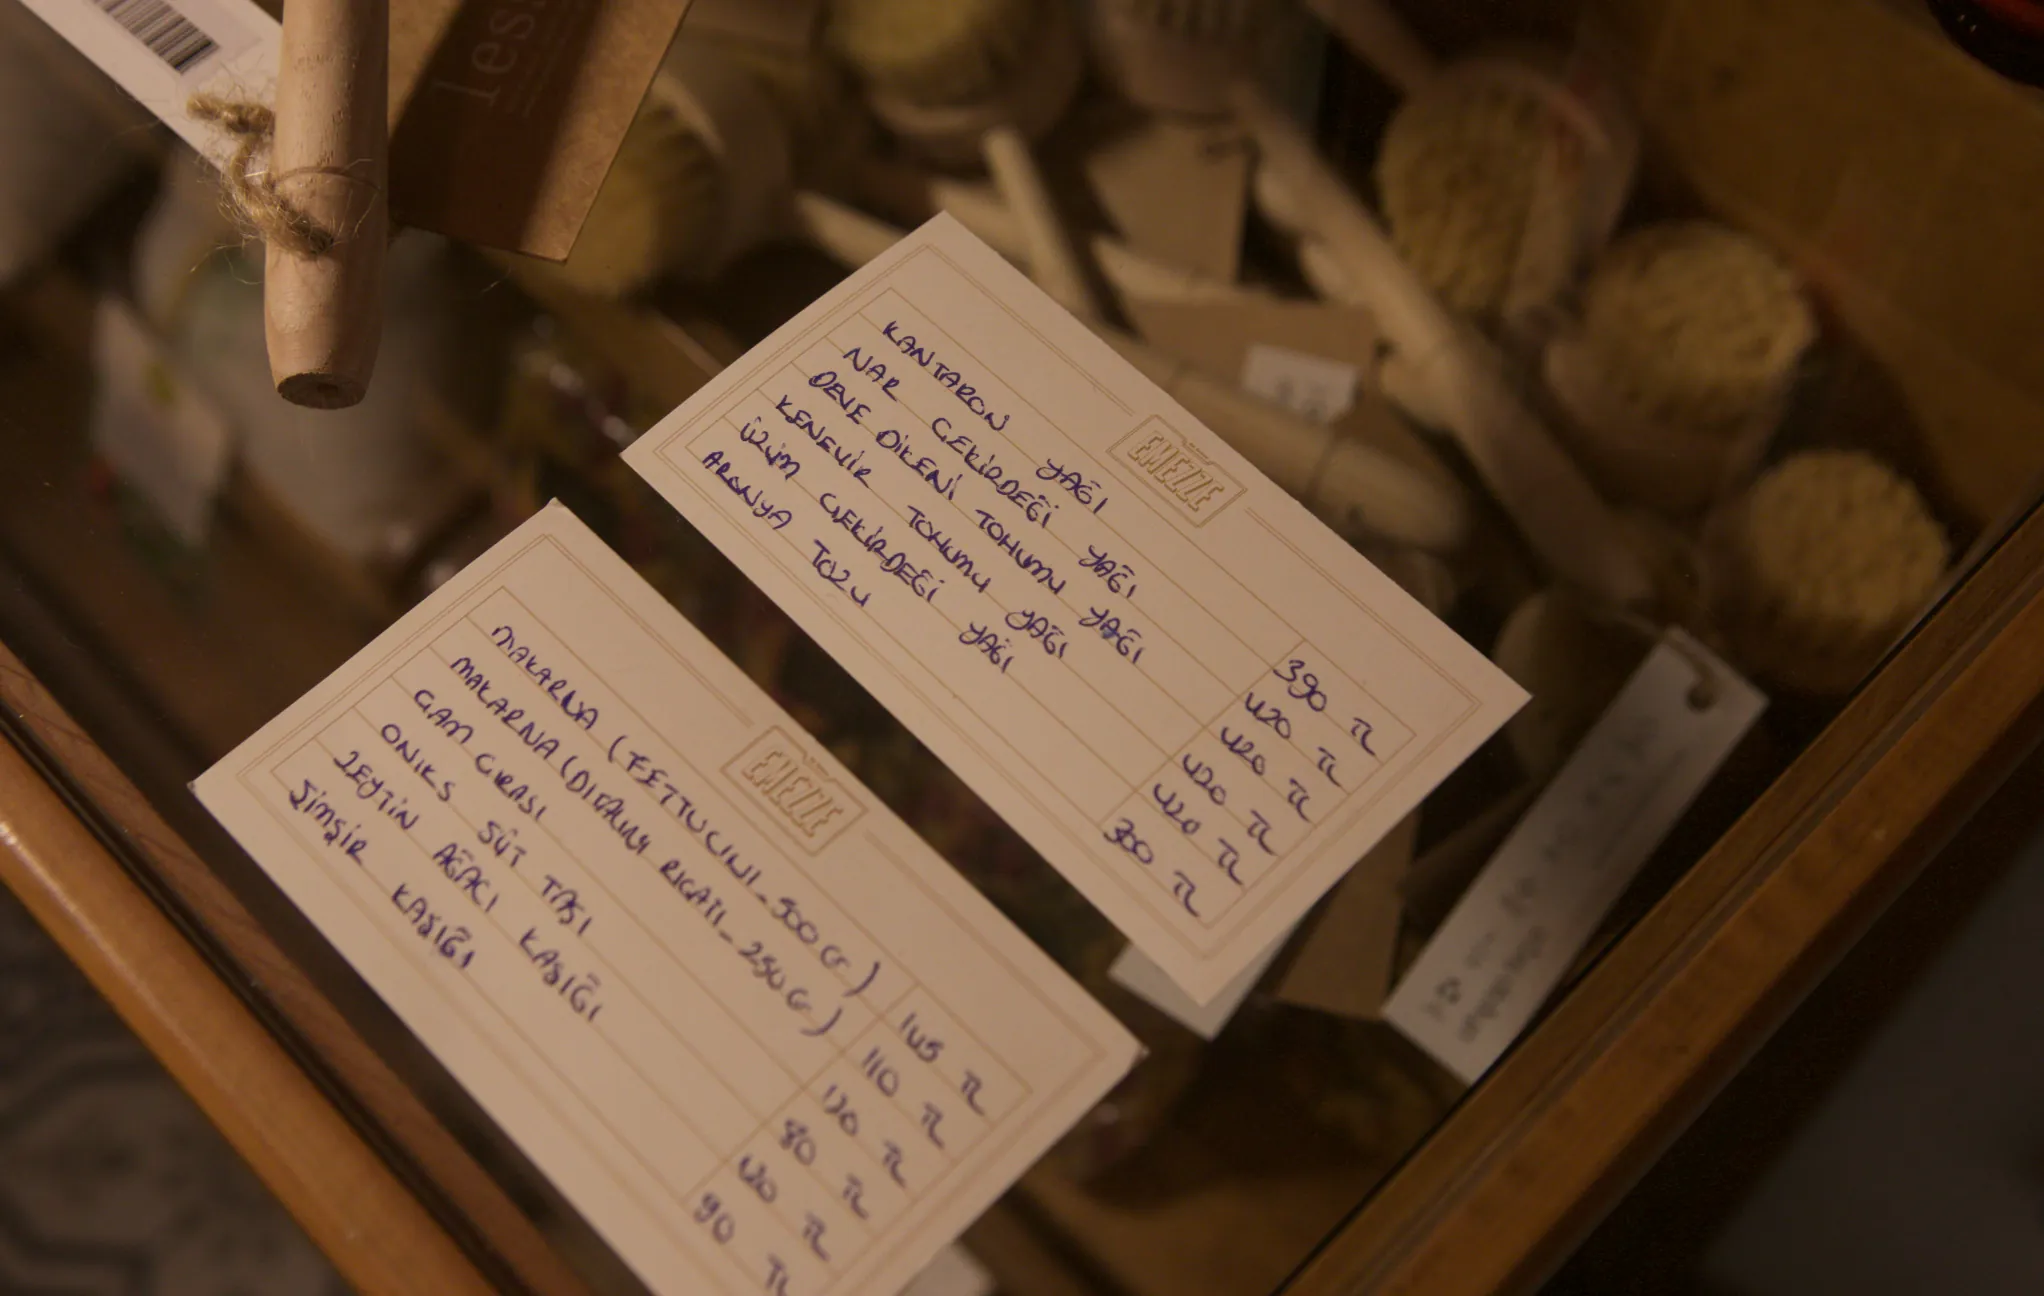 less
EMEZZE
KANTARON YAĞI 390 TL
NAR ÇEKİRDEĞİ YAĞI 420 TL
DEVE DİKENİ TOHUMU YAĞI 420 TL
KENEVİR TOHUMU YAĞI 420 TL
ÜZÜM ÇEKİRDEĞİ YAĞI 420 TL
ARONYA TOZU 300 TL
EMEZZE
MAKARNA (FETTUCINI_500 Gr) 145 TL
MAKARNA (DITALINI RIGATI_250 Gr) 110 TL
ÇAM ÇIRASI 120 TL
ONİKS SÜT TAŞI 80 TL
ZEYTİN AĞACI KAŞIĞI TL
ŞİMŞİR KAŞIĞI 90 TL